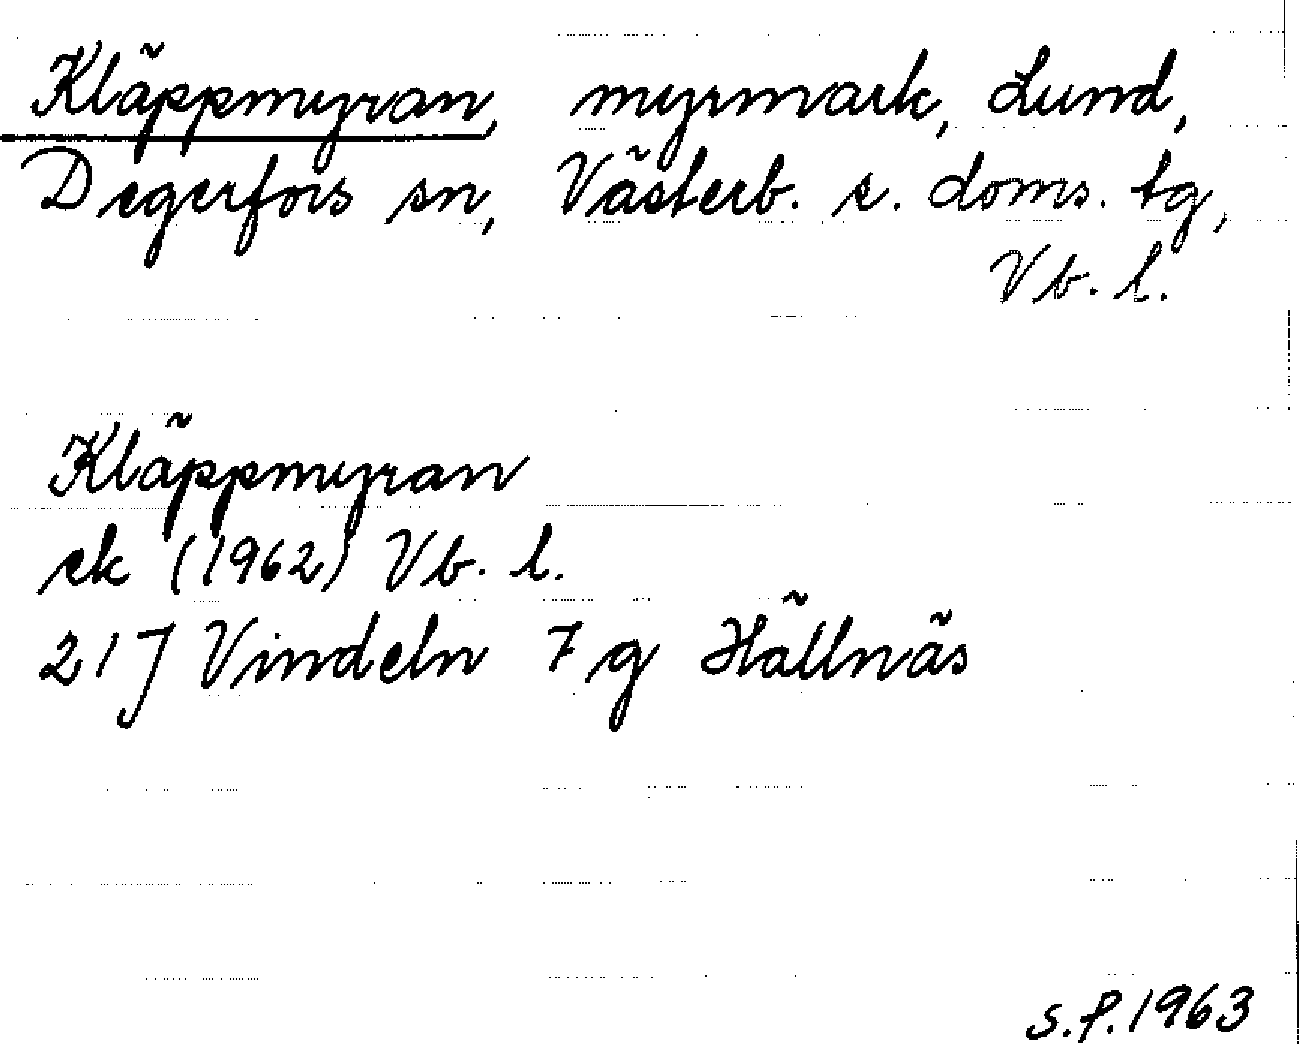 Kläppmyran, myrmark, Lund,
Degerfors sn, Västerb. s. doms. tg,
Vb. l.
Kläppmyran
ek (1962) Vb. l.
21 J Vindeln 7 g Hällnäs
S.f. 1963